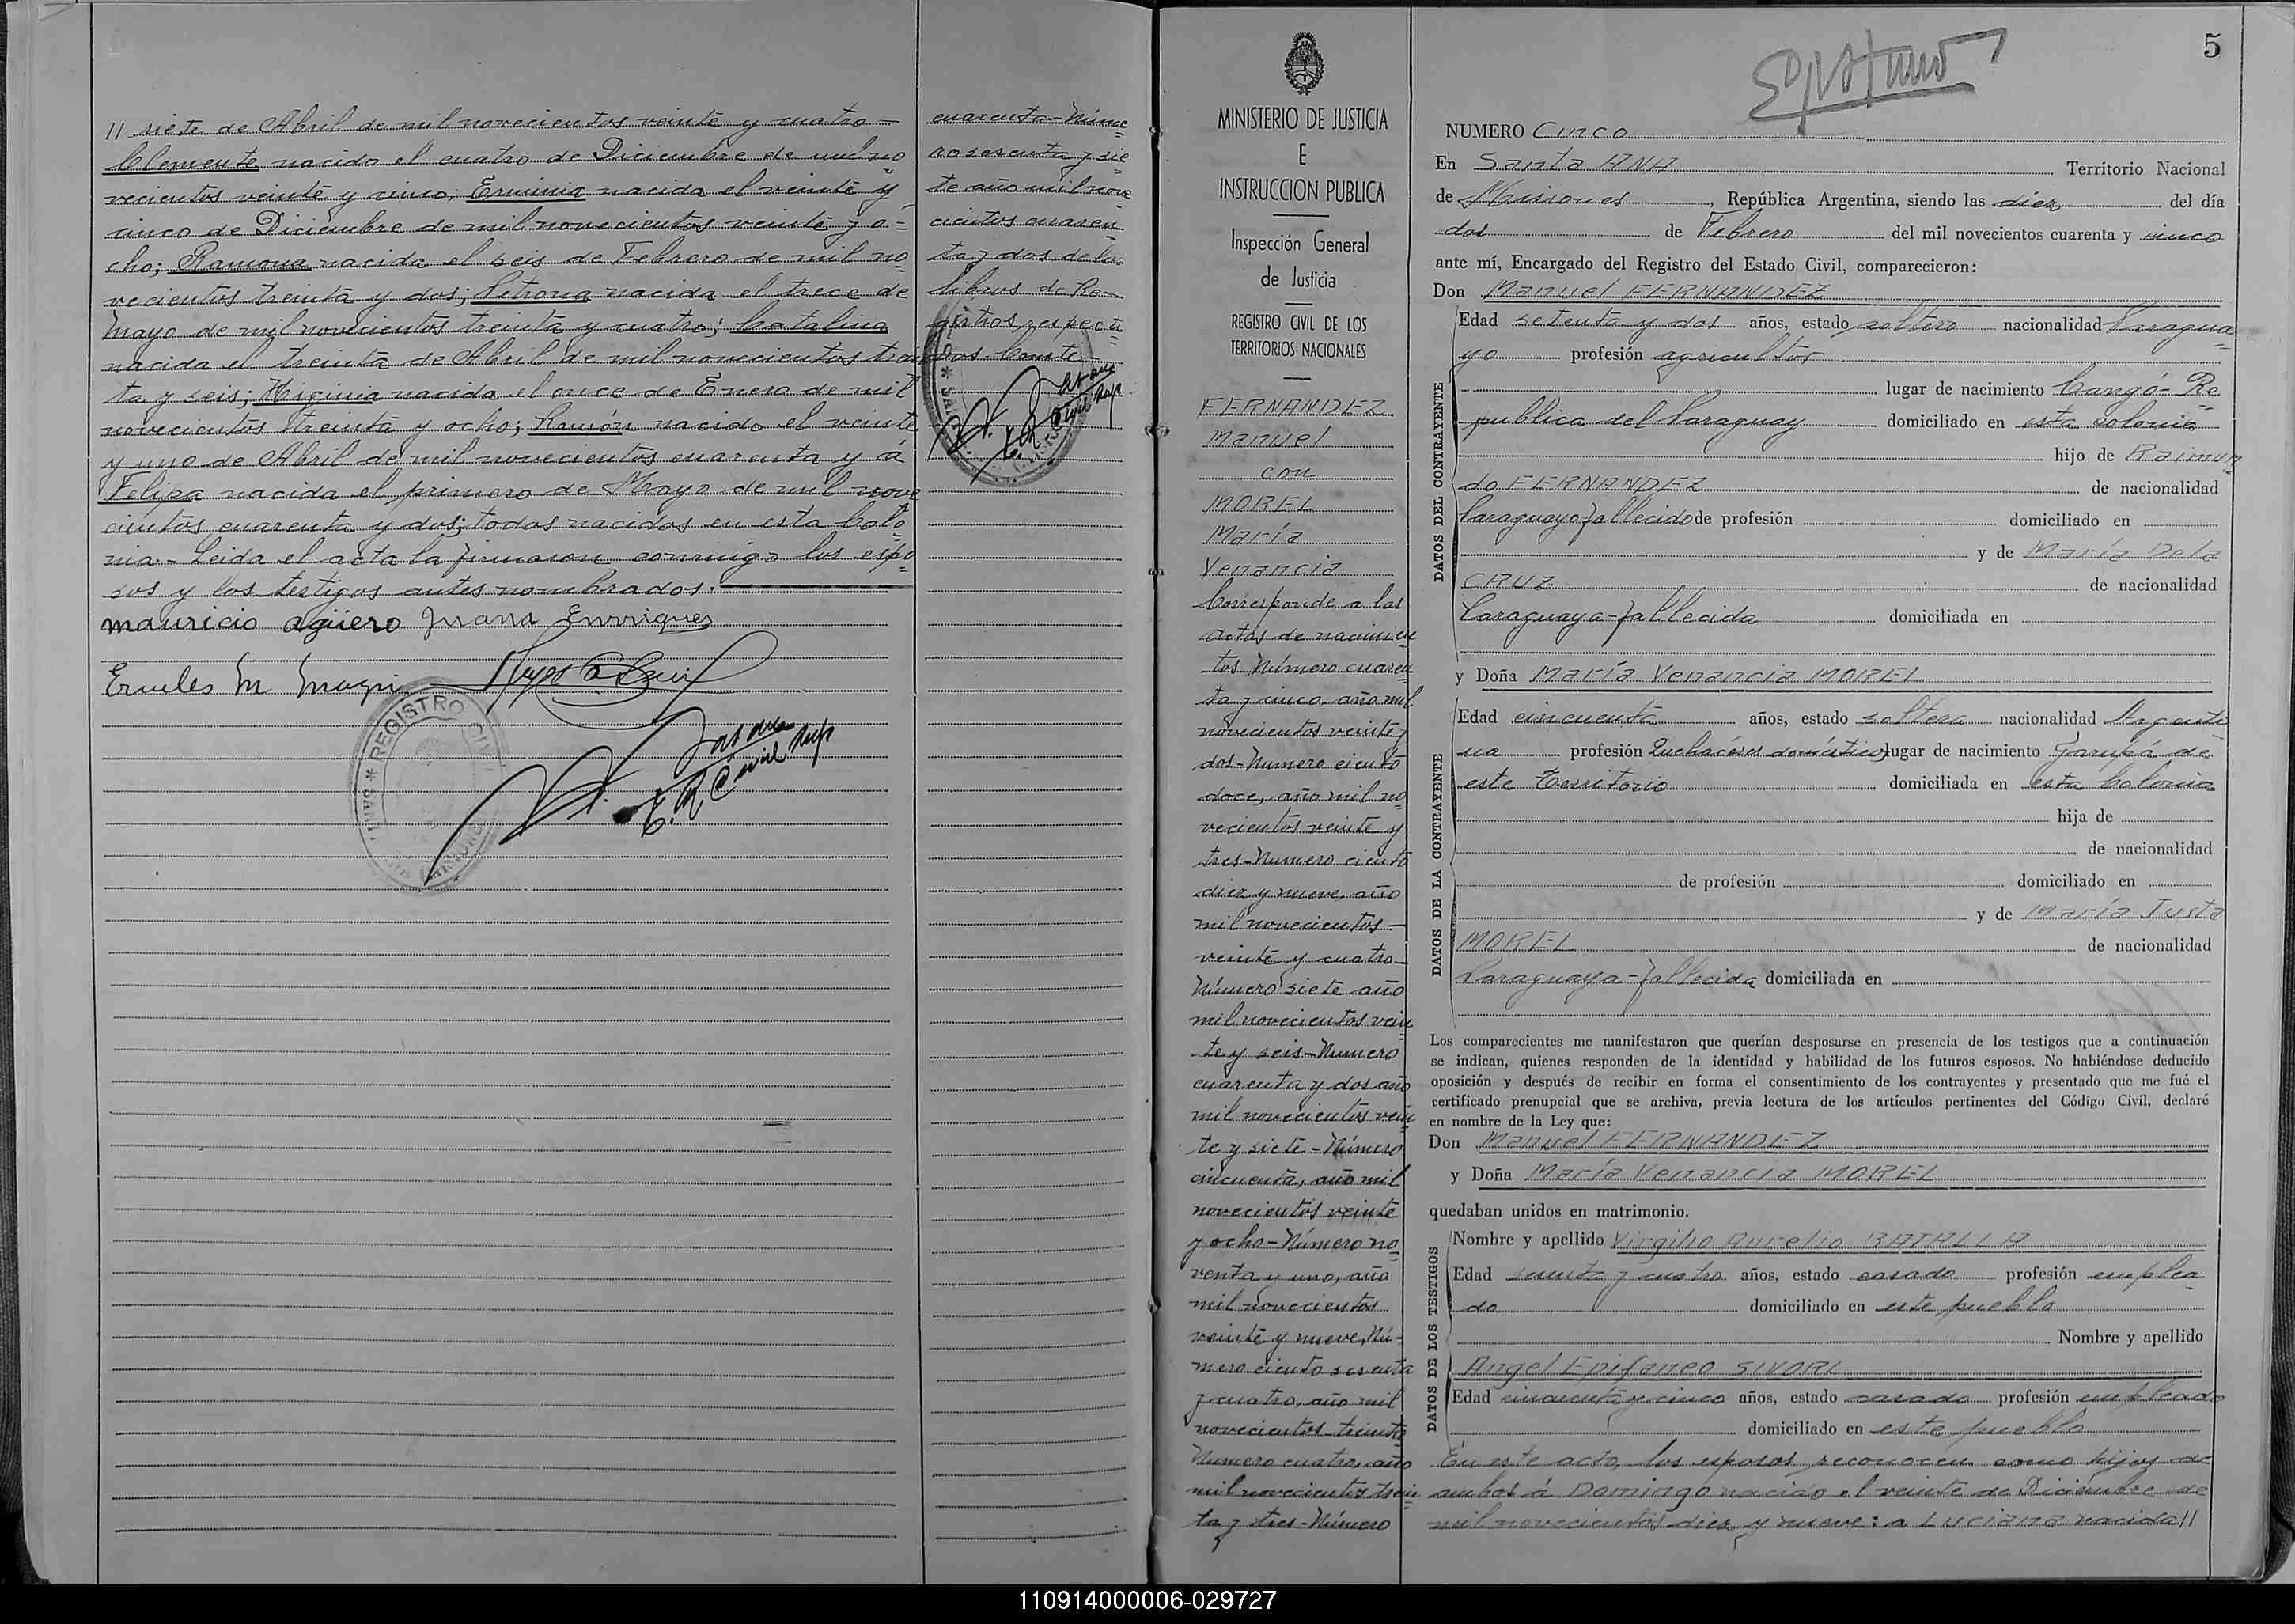 // siete de Abril de mil novecientos veinte y cuatro –
Clemente nacido el cuatro de Diciembre de mil no
vecientos veinte y cinco; Erminia nacida el veinte y
cinco de Diciembre de mil novecientos veinte y o=
cho; Ramona nacida el seis de Febrero de mil no
vecientos treinta y dos; Petrona nacida el trece de
Mayo de mil novecientos treinta y cuatro; Catalina
nacida el treinta de Abril de mil novecientos trein
ta y seis; Higinia nacida el once de Enero de mil
novecientos treinta y ocho; Ramón nacido el veinte
y uno de Abril de mil novecientos cuarenta y á
Felipa nacida el primero de Mayo de mil nove
cientos cuarenta y dos; todos nacidos en esta Colo
nia.- Leida el acta la firmaron conmigo los espo
sos y los testigos antes nombrados.
mauricio agüero Juana Enrriques
REGISTRO CIVIL
cuarenta–Núme
ro sesenta y sie
te año mil nove
cientos cuaren
ta y dos de los
libros de Re-
gistros respecti
vos. Conste –
MINISTERIO DE JUSTICIA
E
INSTRUCCION PUBLICA
Inspección General
de Justicia
REGISTRO CIVIL DE LOS
TERRITORIOS NACIONALES
FERNANDEZ
Manuel
con
MOREL
María
Venancia
Corresponde a las
actas de nacimien
tos Número cuaren
ta y cinco, año mil
novecientos veinte y
dos–Numero ciento
doce, año mil no
vecientos veinte y
tres–Numero ciento
diez y nueve, año
mil novecientos –
veinte y cuatro –
Número siete año
mil novecientos vein
te y seis–Numero
cuarenta y dos año
mil novecientos vein
te y siete–Número
cincuenta, año mil
novecientos veinte
y ocho–Número no
venta y uno, año
mil novecientos
veinte y nueve, Nú-
mero ciento sesenta
y cuatro, año mil
novecientos treinta
Numero cuatro, año
mil novecientos trein
ta y tres–Número
5
NUMERO Cinco
En Santa ANA Territorio Nacional
de Misiones, República Argentina, siendo las diez del día
dos de Febrero del mil novecientos cuarenta y cinco
ante mí, Encargado del Registro del Estado Civil, comparecieron:
Don Manuel FERNANDEZ
DATOS DEL CONTRAYENTE
Edad setenta y dos años, estado soltero nacionalidad Paragua
yo profesión agricultor
lugar de nacimiento Cangó–Re
publica del Paraguay domiciliado en esta colonia
hijo de Raimun
do FERNANDEZ de nacionalidad
Paraguayo fallecido de profesión domiciliado en
y de María Dela
CRUZ de nacionalidad
Paraguaya–fallecida domiciliada en
y Doña María Venancia MOREL
DATOS DE LA CONTRAYENTE
Edad cincuenta años, estado soltera nacionalidad Argenti
na profesión Quehacéres domésticos lugar de nacimiento Garupá de
este Territorio domiciliada en esta Colonia
hija de
de nacionalidad
de profesión domiciliado en
y de María Justa
MOREL de nacionalidad
Paraguaya–fallecida domiciliada en
Los comparecientes me manifestaron que querían desposarse en presencia de los testigos que a continuación
se indican, quienes responden de la identidad y habilidad de los futuros esposos. No habiéndose deducido
oposición y después de recibir en forma el consentimiento de los contrayentes y presentado que me fué el
certificado prenupcial que se archiva, previa lectura de los artículos pertinentes del Código Civil, declaré
en nombre de la Ley que:
Don Manuel FERNANDEZ
y Doña María Venancia MOREL
quedaban unidos en matrimonio.
DATOS DE LOS TESTIGOS
Nombre y apellido Virgilio Aurelio BATALLA
Edad sesenta y cuatro años, estado casado profesión emplea
do domiciliado en este pueblo
Nombre y apellido
Angel Epifaneo SIVORI
Edad cincuenta y cinco años, estado casado profesión empleado
domiciliado en este pueblo
En este acto, los esposos reconocen como hijos de
ambos á Domingo nacido el veinte de Diciembre de
mil novecientos diez y nueve: a Luciana nacida //
110914000006-029727